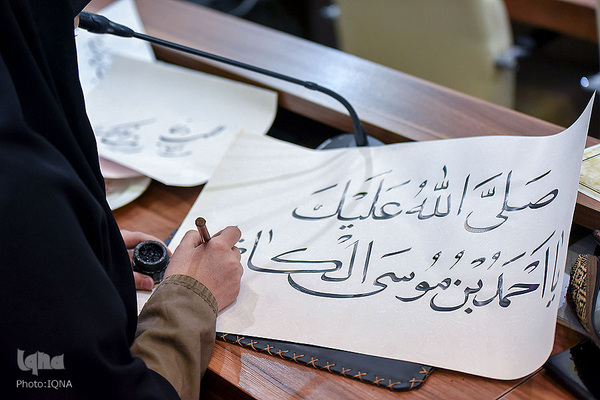 صَلَّی اللّهُ عَلَیْکَ
یا اَحْمَدُ بْنُ مُوسَی الْکاظ
iqna
Photo:IQNA